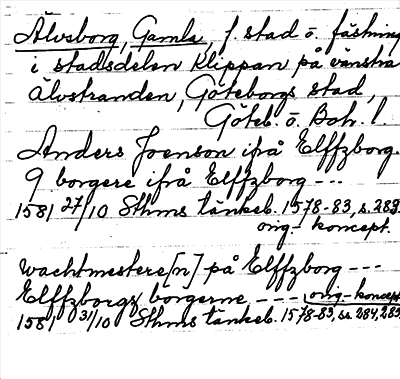 Älvsborg, Gamla, f. stad o. fästning
i stadsdelen Klippan på vänstra
älvstranden, Göteborgs stad,
Göteb. o. Boh. l.
Anders Joenson ifrå Elffzborg.
9 borgere ifrå Elffzborg ---
1581 27/10 Sthms tänkeb. 1578-83, s. 283.
orig-koncept.
Wachtmestere[n] på Elffzborg ---
Elffzborgz borgerne --- orig-koncept
1581 31/10 Sthms tänkeb. 1578-83, ss. 284, 285